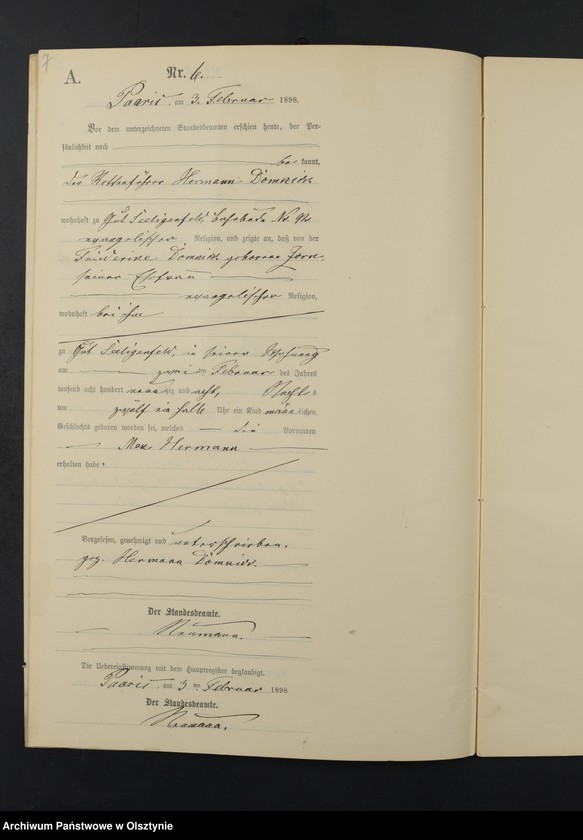 7
A.
Nr. 6.
Paaris, am 3. Februar 1898.
Vor dem unterzeichneten Standesbeamten erschien heute, der Per-
sönlichkeit nach
be kannt,
der Hermann Dömnick
wohnhaft zu Gut Seeligenfeld,
evangelischer Religion, und zeigte an, daß von der
Friederike Dömnick geborene
seiner Ehefrau
evangelischer Religion,
wohnhaft bei ihm
zu Gut Seeligenfeld, in seiner Wohnung
am zwei ten Februar des Jahres
tausend acht hundert neun zig und acht, Nachts
um zwölf ein halb Uhr ein Kind männ lichen
Geschlechts geboren worden sei, welches die Vornamen
Max Hermann
erhalten habe.
Vorgelesen, genehmigt und unterschrieben.
gez. Hermann Dömnick.
Der Standesbeamte.
Neumann.
Die Uebereinstimmung mit dem Hauptregister beglaubigt.
Paaris, am 3 ten Februar 1898
Der Standesbeamte.
Neumann.
Archiwum Państwowe w Olsztynie